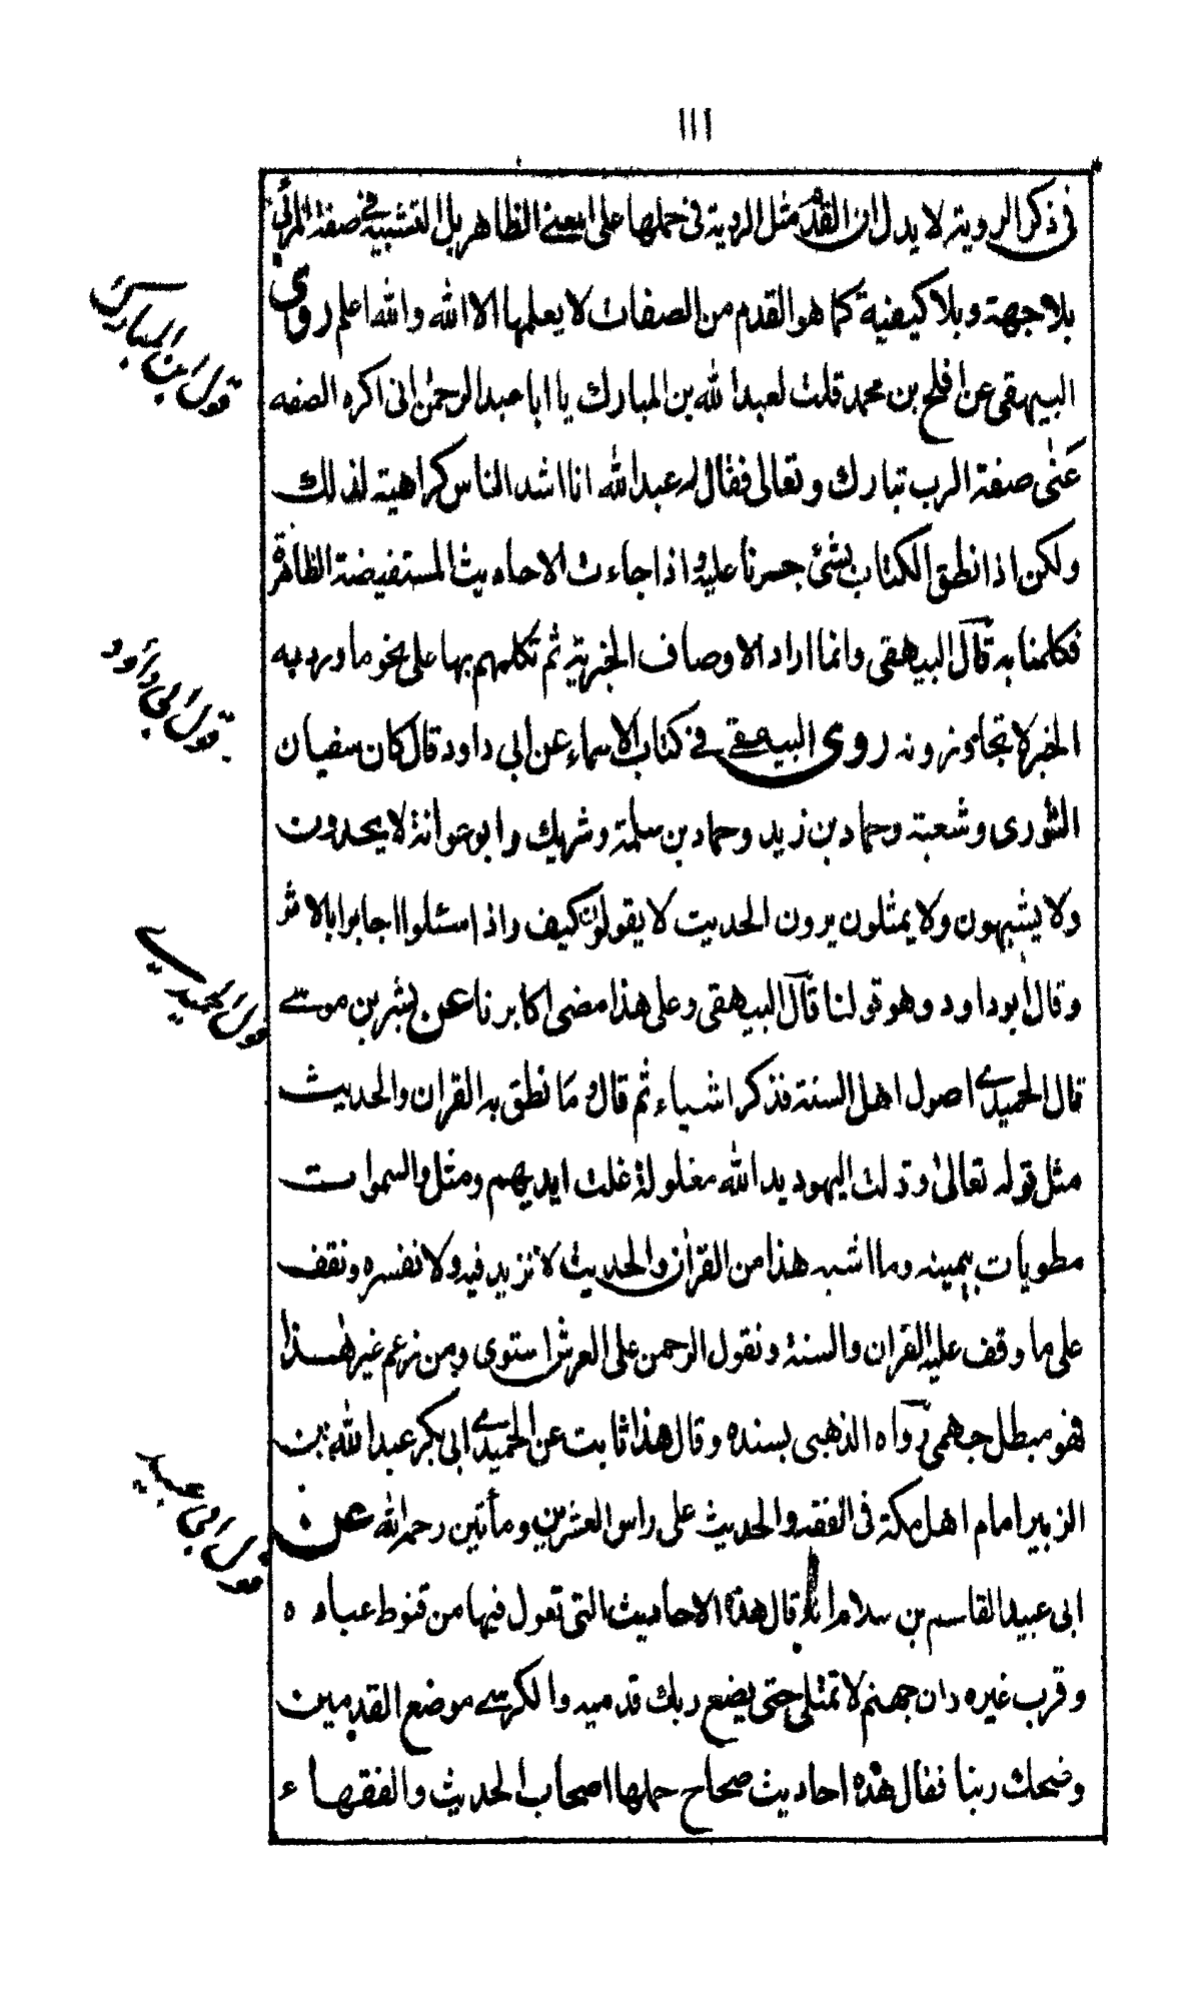 ١١١
في ذكر الروية لا يدل ان القدم مثل الروية في حملها على المعنى الظاهر بل التشبيه في صفة المرئي
بلا جهة وبلا كيفية كما هو القدم من الصفات لا يعلمها الا الله والله اعلم روى
البيهقي عن افلح بن محمد قلت لعبد الله بن المبارك يا ابا عبد الرحمن انى اكره الصفه
عَنٰى صفة الرب تبارك وتعالى فقال له عبد الله انا اشد الناس كراهية لذلك
ولكن اذا نطق الكتاب بشئ جسرنا عليه واذا جاءت الاحاديث المستفيضة الظاهرة
فكلمنا به قال البيهقى وانما اراد الاوصاف الخبرية ثم تكلمهم بها على نحو ما ورد به
الخبر لا تجاوزونه روى البيهقي في كتاب الاسماء عن ابى داود قال كان سفيان
الثورى وشعبة وحماد بن زيد وحماد بن سلمة وشريك وابو عوانة لا يحدون
ولا يشبهون ولا يمثلون يرون الحديث لا يقولون كيف واذا سئلوا اجابوا بالاثر
وقال ابو داود وهو قولنا قال البيهقى وعلى هذا مضى اكابرنا عن بشر بن موسے
قال الحميدے اصول اهل السنة فذكر اشياء ثم قال وما نطق به القران والحديث
مثل قوله تعالى وقالت اليهود يد الله مغلولة غلت ايديهم ومثل والسموات
مطويات بيمينه وما اشبه هذا من القران والحديث لا نزيد فيه ولا نفسره ونقف
على ما وقف عليه القران والسنة ونقول الرحمن على العرش استوى ومن زعم غير هٰذا
فهو مبطل جهمى رواه الذهبى بسنده وقال هذا ثابت عن الحميدے ابى بكر عبد الله بن
الزبير امام اهل مكة فى الفقه والحديث على راس العشرين ومأتين رحمه الله عن
ابى عبيد القاسم بن سلام انه قال هذه الاحاديث التى تقول فيها من قنوط عباده
وقرب غيره وان جهنم لا تمتلى حتى يضع ربك قدميه والكرسے موضع القدمين
وضحك ربنا فقال هذه احاديث صحاح حملها اصحاب الحديث والفقهاء
قول ابن المبارك
قول ابى داؤد
قول الحميدے
قول ابى عبيد